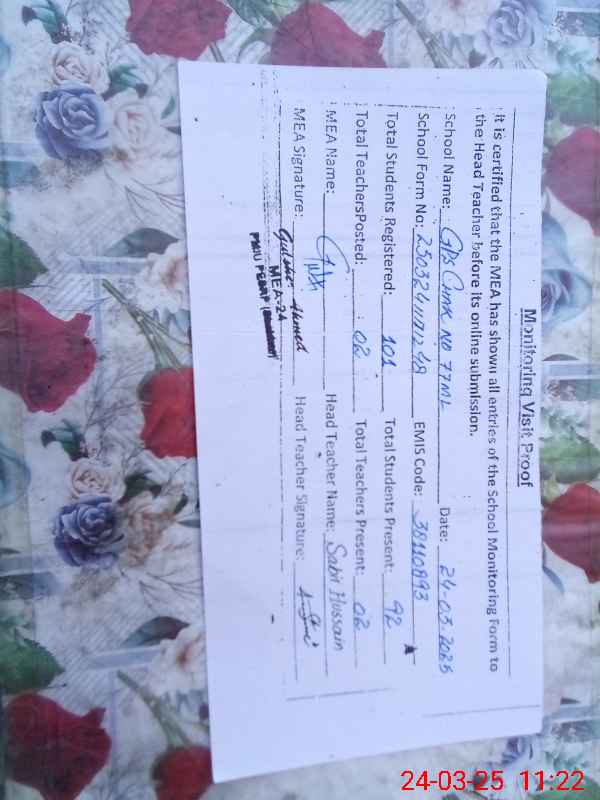 Monitoring Visit Proof
It is certified that the MEA has shown all entries of the School Monitoring Form to
the Head Teacher before its online submission.
School Name: GPS Chak No 77ML Date: 24-03-2025
School Form No: EMIS Code: 38110893
Total Students Registered: 101 Total Students Present: 92
Total TeachersPosted: 02 Total Teachers Present: 02
MEA Name: Head Teacher Name: Sabir Hussain
MEA Signature: Head Teacher Signature:
Ahmed
MEA-24
24-03-25 11:22